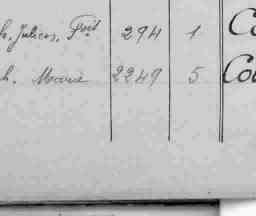 h, Julius, Prof. 294 1 Co
h. Marie 2249 5 Co